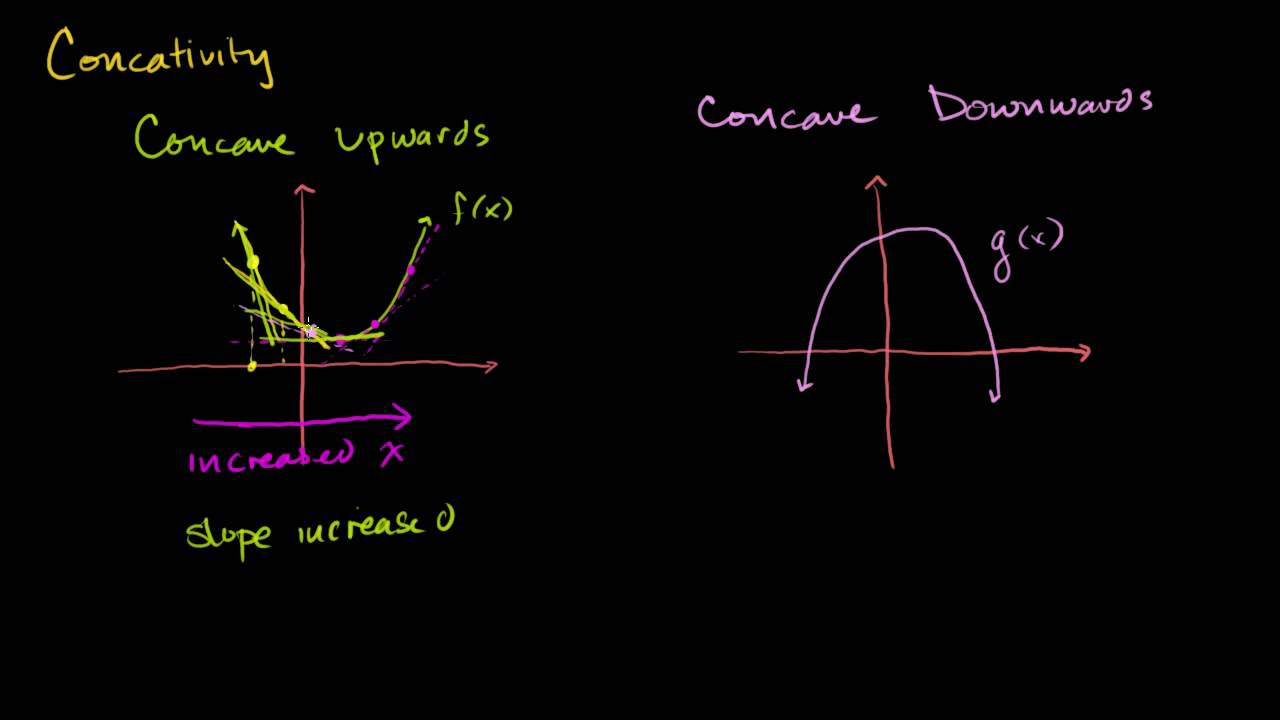 Concativity
Concave upwards
Concave Downwards
f(x)
g(x)
increased x
slope increased